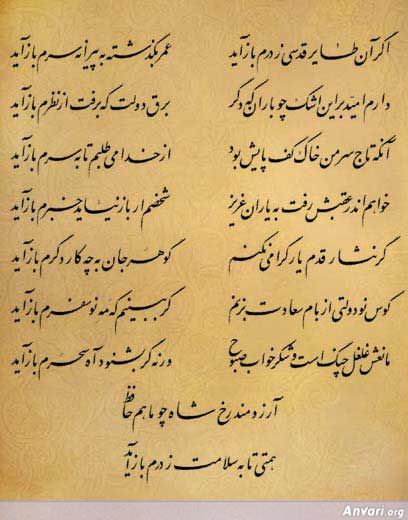 اگر آن طایر قدسی ز درم بازآید عمر بگذشته به پیرانه سرم بازآید
دارم امید بر این اشک چو باران که دگر برق دولت که برفت از نظرم بازآید
آنکه تاج سر من خاک کف پایش بود از خدا می طلبم تا به سرم بازآید
خواهم اندر عقبش رفت به یاران عزیز شخصم ار بازنیاید خبرم بازآید
گر نثار قدم یار گرامی نکنم گوهر جان به چه کار دگرم بازآید
کوس نودولتی از بام سعادت بزنم گر ببینم که مه نوسفرم بازآید
مانعش غلغل چنگ است و شکرخواب صبوح ورنه گر بشنود آه سحرم بازآید
آرزومند رخ شاه چو ماهم حافظ
همتی تا به سلامت ز درم بازآید
Anvari.org